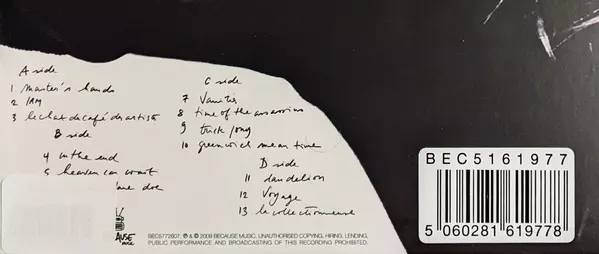 A side
1 master's hands
2 IRM
3 le chat du café des artistes
B side
4 in the end
5 heaven can wait
me and
C side
7 Vanities
8 time of the assassins
9 trick pony
10 greenwich mean time
D side
11 dandelion
12 Voyage
13 la collectionneuse
BEC5772607. ℗ & © 2009 BECAUSE MUSIC. UNAUTHORISED COPYING, HIRING, LENDING,
PUBLIC PERFORMANCE AND BROADCASTING OF THIS RECORDING PROHIBITED.
BEC5161977
5 060281 619778